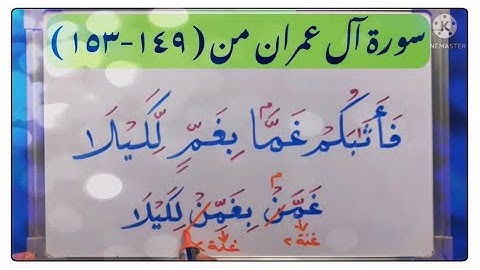 سورة آل عمران من (١٤٩-١٥٣)
KINEMASTER
فَأَثَٰبَكُمْ غَمًّۢا بِغَمٍّ لِّكَيْلَا
م
غَمَّنْ بِغَمِّنْ لِكَيْلَا
غنة ٢ غنة ٢